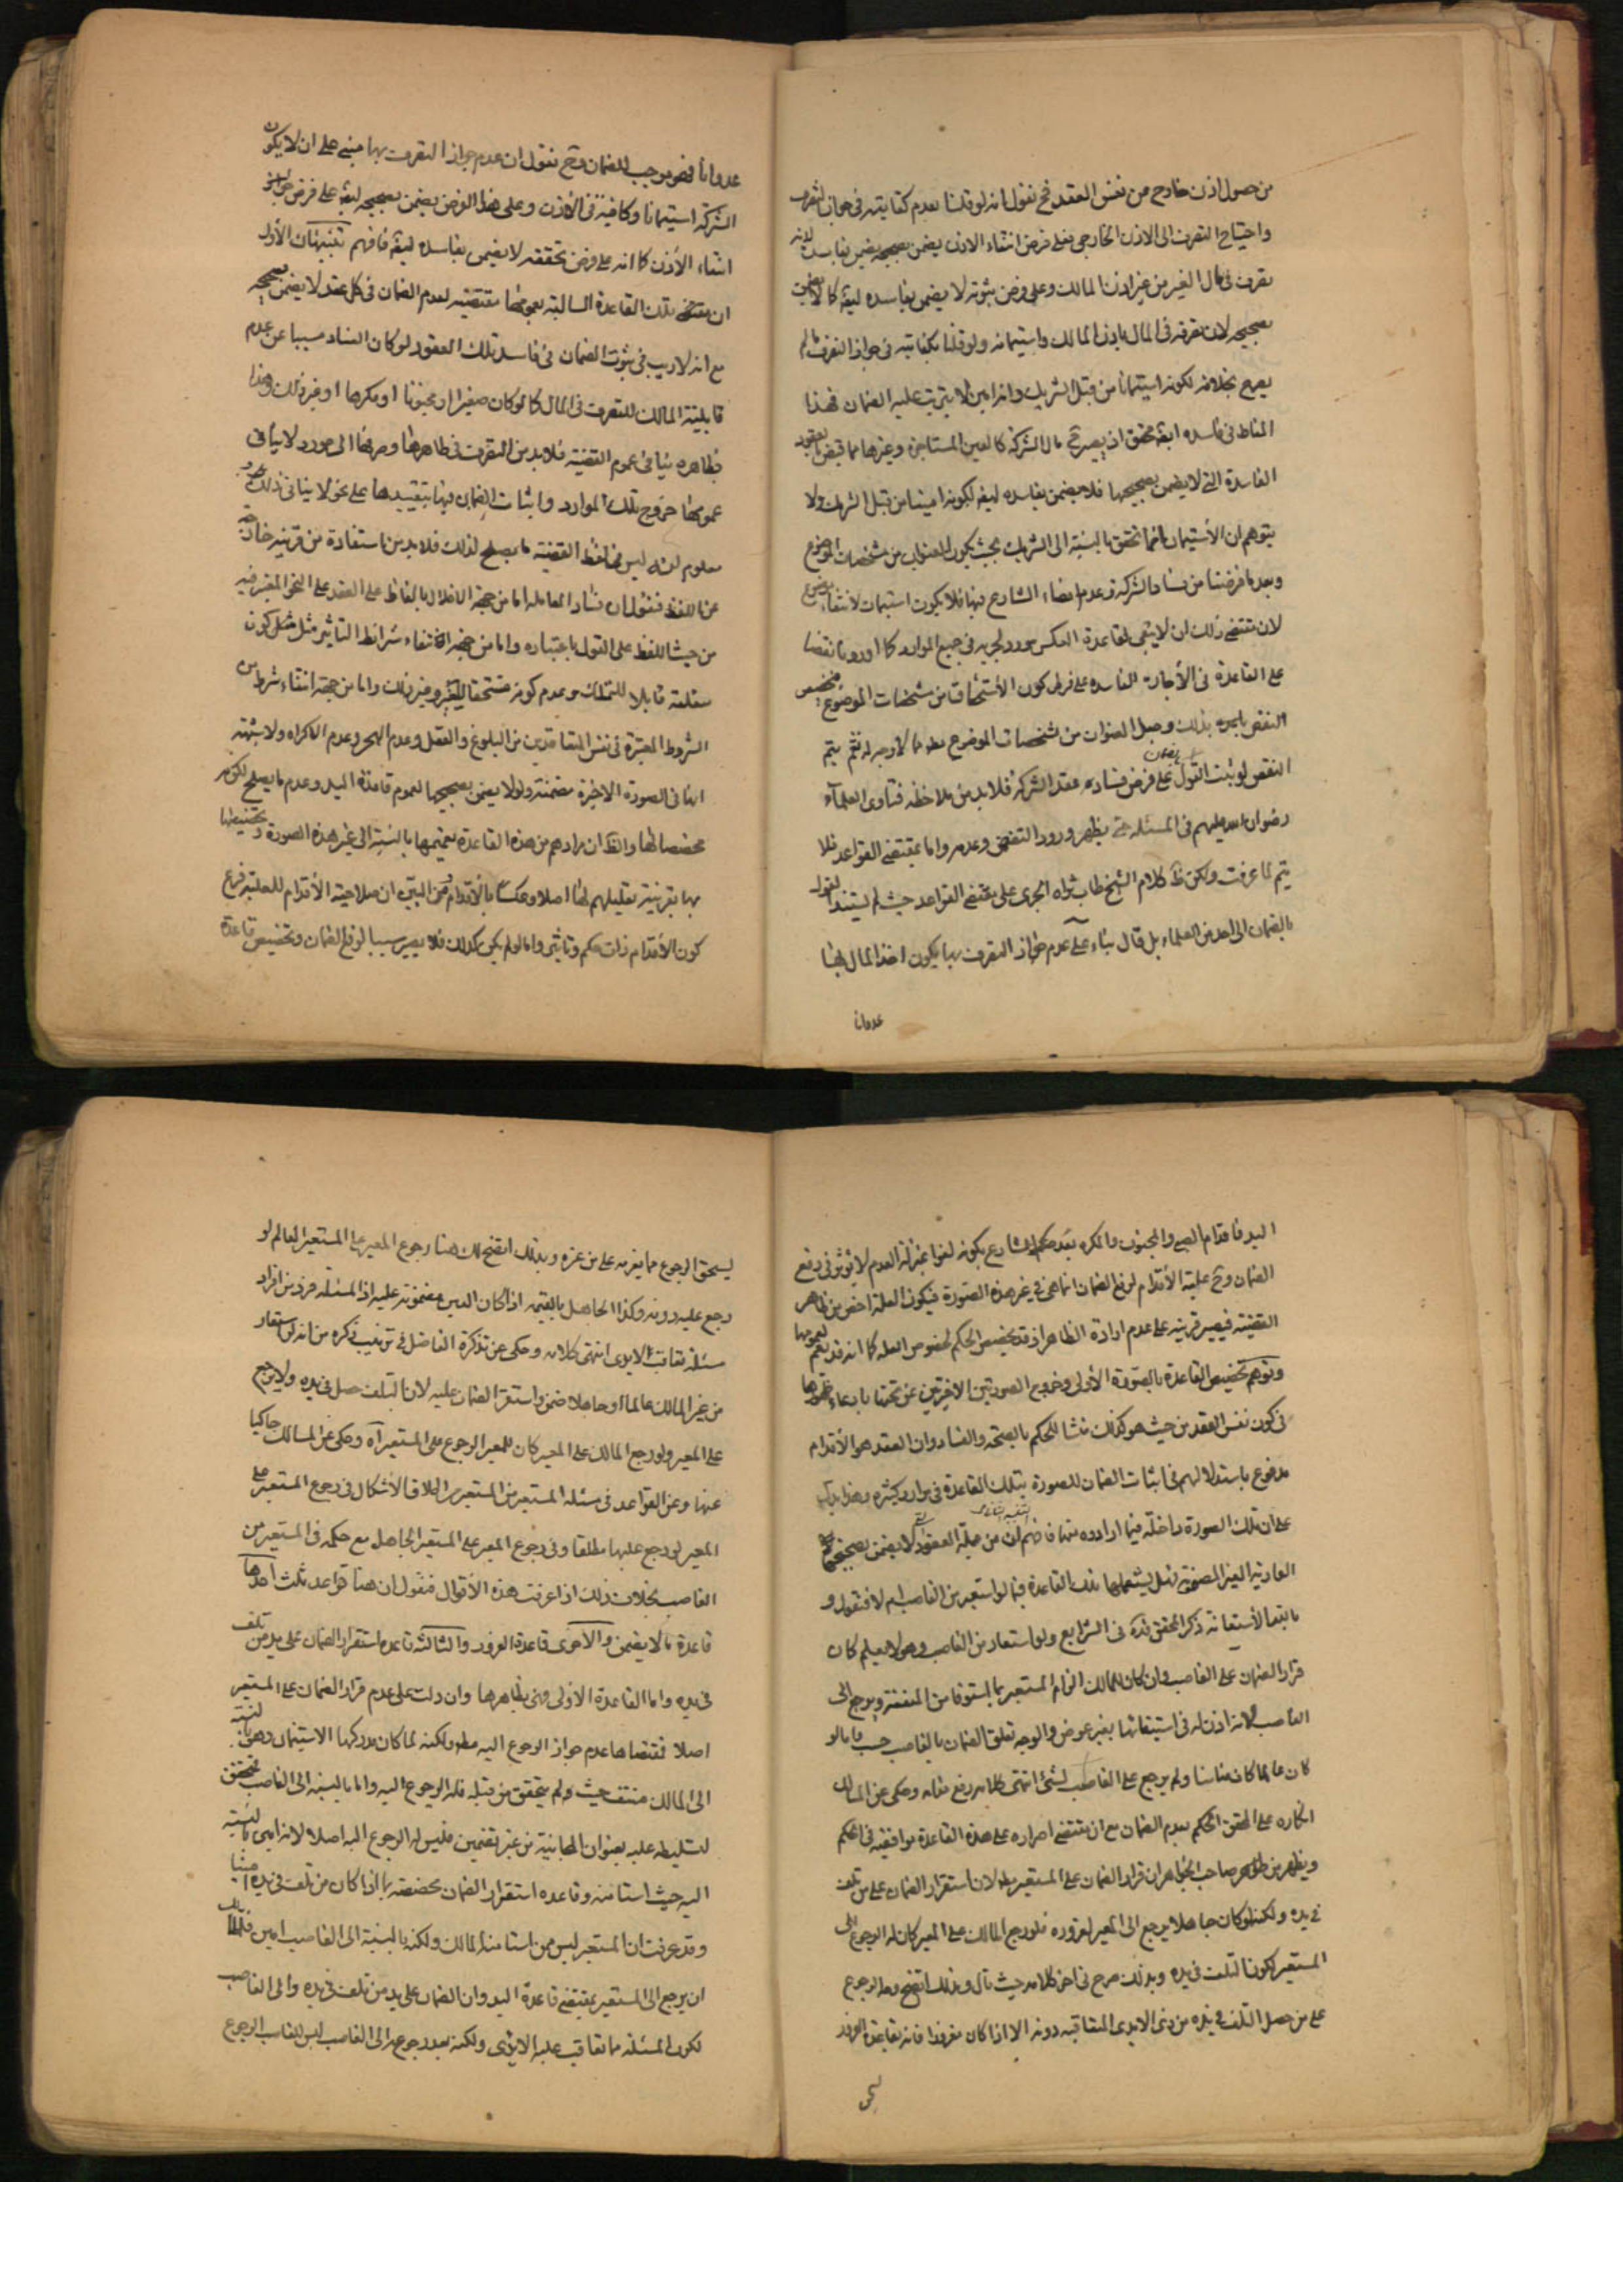 من حصول اذن خارج من نفس العقد فح نقول انه لو قلنا بعدم كفايته فى جواز التصرف
واحتياج التصرف الى الاذن الخارجى فعلى فرض انتفاء الاذن يضمن بصحيحه يضمن بفاسده لانه
تصرف فى مال الغير من غير اذن المالك وعلى فرض ثبوته لا يضمن بفاسده ايضا كما لا يضمن
بصحيحه لان تصرفه فى المال باذن المالك واستيمانه ولو قلنا بكفايته فى جواز التصرف ما لم
يصرح بخلافه لكونه استيمانا من قبل الشريك وانه امين لا يترتب عليه الضمان فهذا
المناط فى فاسده ايضا محقق اذ يصير ح مال الشركة كالعين المستاجرة وغيرها مما قبض بالعقود
الفاسدة التى لا يضمن بصحيحها فلا يضمن بفاسده ايضا لكونه امينا من قبل الشريك ولا
يتوهم ان الأستيمان انما تحقق بالنسبة الى الشريك بحيث يكون العنوان من مشخصات الموضوع
وبعد ما فرضنا من فساد الشركة وعدم امضاء الشارع فيها فلا يكون استيمان لانتفاء موضوع
لان مقتضى ذلك ان لا يبقى لقاعدة العكس مورد لجريه فى جميع الموارد كما اوردنا نقضا
على القاعدة فى الأجارة الفاسده على فرض كون الأستحقاق من مشخصات الموضوع فتخصيص
النقض بالجره بذلك وجعل العنوان من مشخصات الموضوع مطلقا لا وجه له نعم يتم
النقض لو ثبت القول بالضمان على فرض فساده عقد الشركة فلا بد من ملاحظه فتاوى العلماء
رضوان الله عليهم فى المسئله حتى يظهر ورود النقض وعدمه واما بمقتضى القواعد فلا
يتم لما عرفت ولكن ظ كلام الشيخ طاب ثراه الجرى على مقتضى القواعد حيث لم يستند القول
بالضمان الى احد من العلماء بل قال بناء على عدم جواز التصرف بها يكون اخذ المال بها
عدوانا
عدوانا فهو موجب للضمان وح نقول ان عدم جواز التصرف بها مبنى على ان لا يكون
الشركة استيمانا وكافية فى الأذن وعلى هذا الفرض يضمن بصحيحه ايضا على فرض
انتفاء الأذن كما انه على فرض تحققه لا يضمن بفاسده ايضا فافهم تنبيهان الأول
ان مقتضى تلك القاعدة السالبة بعمومها مقتضية لعدم الضمان فى كل عقد لا يضمن بصحيحه
مع انه لا ريب فى ثبوت الضمان فى فاسد تلك العقود لو كان الفساد مسببا عن عدم
قابلية المالك للتصرف فى المال كما لو كان صغيرا او مجنونا او مكرها او غير ذلك وهذا
بظاهره ينافى عموم القضية فلا بد من التصرف فى ظاهرها وصرفها الى مورد لا ينافى
عمومها خروج تلك الموارد واثبات الضمان فيها بتقييدها على نحو لا ينافى ذلك
معلوم انه ليس فى لفظ القضية ما يصلح لذلك فلا بد من استفادة من قرينه خارجة
عن اللفظ فنقول ان فساد المعامله اما من جهة الاخلال بالفاظ على العقد على النحو المقرر فيه
من حيث اللفظ على القول باعتباره واما من جهة انتفاء شرائط التاثير مثل كون
متعلقه قابلا للتملك وعدم كونه مستحقا للغير وغير ذلك واما من جهة انتفاء شرط من
الشروط المعتبرة فى نفس المتعاقدين من البلوغ والعقل وعدم الهجر وعدم الاكراه ولا شبهة
انها فى الصورة الاخيرة مضمنة ولو لا يضمن بصحيحها لعموم قاعدة اليد وعدم ما يصلح لكونه
مخصصا لها والظ ان مرادهم من هذه القاعدة تعميمها بالنسبة الى غير هذه الصورة وتخصيصها
بها بقرينة تعليلهم لها اصلا وعكسا بالأقدام ومن البين ان صلاحية الأقدام للعلية فرع
كون الأقدام ذات حكم وتاثير واما لو لم يكن كذلك فلا يصير سببا لرفع الضمان وتخصيص قاعدة
اليد فاقدام الصبى والمجنون والمكره بعد حكم الشارع بكونه لغوا بمنزلة العدم لا يؤثر فى رفع
الضمان وح علية الأقدام لرفع الضمان انما هى فى غير هذه الصورة فيكون العلة اخص من ظاهر
القضية فيصير قرينه على عدم ارادة الظاهر اذ قد يخصص الحكم بخصوص العله كما انه قد يعم بعمومها
وتوهم تخصيص القاعدة بالصورة الأولى وخروج الصورتين الاخيرتين عن تحتها بادعاء ظهورها
فى كون نفس العقد من حيث هو كذلك منشا للحكم بالصحة والفساد وان العقد هو الأقدام
مدفوع باستدلالهم فى اثبات الضمان للصورة بتلك القاعدة فى موارد كثيره وهذا يدل
على ان تلك الصورة داخلة فيما ارادوه منها فافهم التنبيه الثانى ان من جملة العقود التى لا يضمن بصحيحها
العارية الغير المضمونة فهل يشملها تلك القاعدة فيما لو استعير من الغاصب ام لا فنقول و
بالله الأستعانة ذكر المحقق قده فى الشرايع ولو استعار من الغاصب وهو لا يعلم كان
قرار الضمان على الغاصب وان كان للمالك الزام المستعير بما استوفاه من المنفعة ويرجع الى
الغاصب لانه اذن له فى استيفائها بغير عوض والوجه تعلق الضمان بالغاصب حسب واما لو
كان عالما كان ضامنا ولم يرجع على الغاصب لشئ انتهى كلامه رفع مقامه وحكى عن المسالك
انكاره على المحقق الحكم بعدم الضمان مع ان مقتضى اصراره على هذه القاعدة موافقته فى الحكم
ويظهر من صاحب الجواهر ان قرار الضمان على المستعير مط لان استقرار الضمان على من تلف
فى يده ولكنه لو كان جاهلا يرجع الى المعير لغروره فلو رجع المالك على المعير كان له الرجوع الى
المستعير لكون التلف فى يده وبذلك صرح فى اخر كلامه حيث قال وبذلك اتضح وجه الرجوع
على من حصل التلف فى يده من ذى الايدى المتعاقبه دونه الا اذا كان مغرورا فانه بقاعدة الغرور
ليستحق الرجوع مما يغرمه على من غره وبذلك اتضح لك هنا رجوع المعير على المستعير العالم لو
رجع عليه دونه وكذا الجاهل بالقيمه اذا كان العين مضمونة عليه اذ المسئله فرد من افراد
مسئلة تعاقب الايدى انتهى كلامه وحكى عن تذكرة الفاضل من انه لو استعار
من غير المالك عالما او جاهلا ضمن واستقر الضمان عليه لان التلف حصل فى يده ولا يرجع
على المعير ولو رجع المالك على المعير كان للمعير الرجوع على المستعير اه وحكى عن المسالك حاكيا
عنها وعن القواعد فى مسئله المستعير من المستعير اطلاق الأشكال فى رجوع المستعير على
المعير لو رجع عليها مطلقا وفى رجوع المعير على المستعير الجاهل مع حكمه فى المستعير من
الغاصب بخلاف ذلك اذا عرفت هذه الأقوال فنقول ان هنا قواعد ثلث احدها
قاعدة ما لا يضمن والاخرى قاعدة الغرور والثالثة قاعدة استقرار الضمان على يد من تلف
فى يده واما القاعدة الاولى وهى بظاهرها وان دلت على عدم قرار الضمان على المستعير
اصلا فمقتضاها عدم جواز الرجوع اليه مطلقا ولكنه لما كان مدركها الاستيمان وهو بالنسبة
الى المالك منتف حيث ولم يتحقق من قبله فله الرجوع اليه واما بالنسبه الى الغاصب فمتحقق
لتسليطه عليه بعنوان المجانية من غير تضمين فليس له الرجوع اليه اصلا لانه امين بالنسبة
اليه حيث استامنه وقاعده استقرار الضمان مخصصة بما اذا كان من تلف فى يده امينا
وقد عرفت ان المستعير ليس ممن استامنه المالك ولكنه بالنسبة الى الغاصب امين فللمالك
ان يرجع الى المستعير بمقتضى قاعدة اليد وان الضمان على يد من تلف فى يده والى الغاصب
لكون المسئله مما تعاقب عليه الايدى ولكنه بعد رجوعه الى الغاصب ليس للغاصب الرجوع